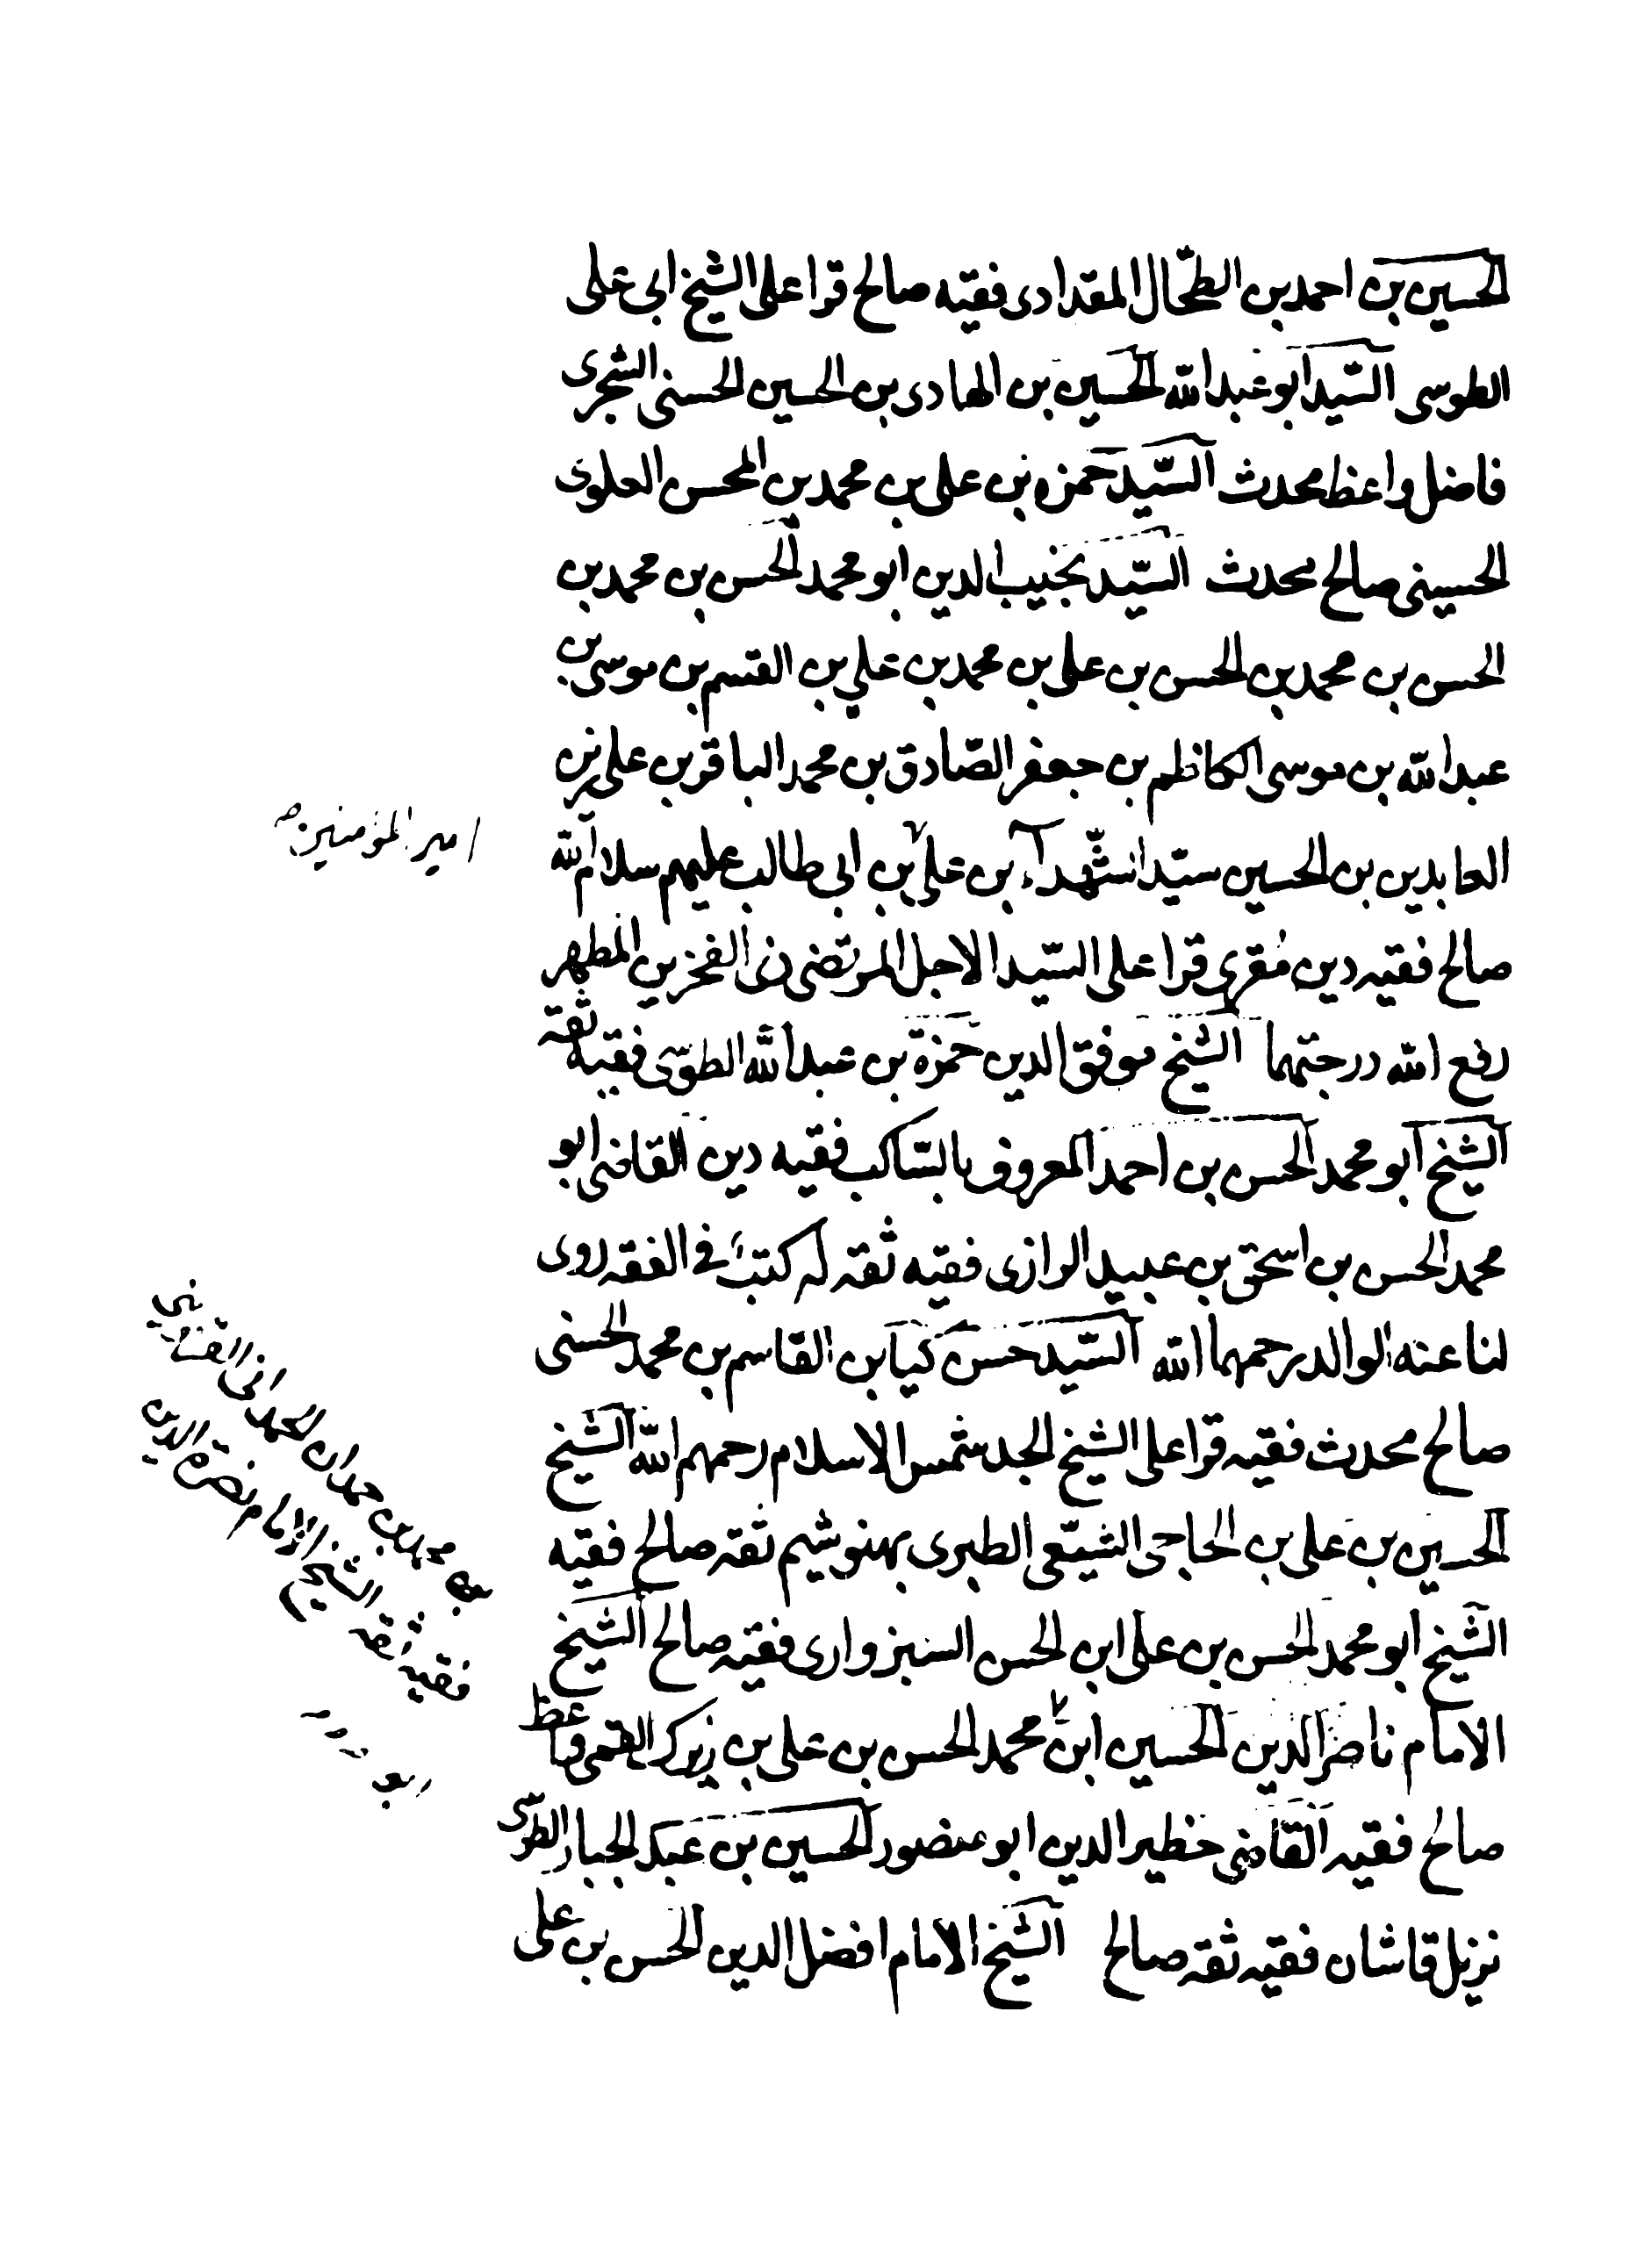 الحسين بن احمد بن الطحّال المقدادى فقيه صالح قرا على الشيخ ابى على
الطوسى السّيد ابو عبد الله الحسين بن الهادى بن الحسين الحسنى الشجرى
فاضل واعظ محدث السّيد حمزه بن على بن محمد بن المحسن العلوى
الحسينى صالح محدث السّيد نجيب الدين ابو محمد الحسن بن محمد بن
الحسن بن محمد بن الحسن بن على بن محمد بن على بن القسم بن موسى بن
عبد الله بن موسى الكاظم بن جعفر الصّادق بن محمد الباقر بن على زين
العابدين بن الحسين سيّد الشّهداء بن على بن ابى طالب عليهم سلام الله
امير المؤمنين صح
صالح فقيه دين مُقرى قرا على السّيد الاجل المرتضى ذى الفخرين المطهر
رفع الله درجتهما الشيخ موفق الدين حمزة بن عبد الله الطوسى فقيه ثقه
الشيخ ابو محمد الحسن بن احمد المعروف بالسّاكب فقيه دين القاضى ابو
محمد الحسن بن اسحق بن عبيد الرازى فقيه ثقه له كتب فى الفقه روى
لنا عنه الوالد رحمهما الله السّيد حسن كيا بن القاسم بن محمد الحسنى
صالح محدث فقيه قرا على الشيخ الجد شمس الاسلام رحمهم الله الشيخ
الحسين بن على بن الحاجى الشيّعى الطبرى بهنوشيم ثقه صالح فقيه
الشيخ ابو محمد الحسن بن على ابن الحسن السبزوارى فقيه صالح الشيخ
الامام ناصر الدين الحسين ابن محمد الحسن بن على بن زيرك القمى واعظ
صالح فقيه القاضى خطير الدين ابو منصور الحسين بن عبد الجبار الطوسى
نزيل قاشان فقيه ثقه صالح الشيخ الامام افضل الدين الحسن بن على
بن محمد بن حمدان الحمدانى القزوينى
فقيه ثقه الشيخ الامام نصرة الدين
ابو